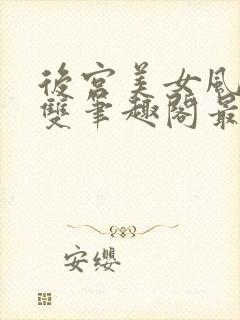 後宮美女風
雙筆趣閣最
安纓